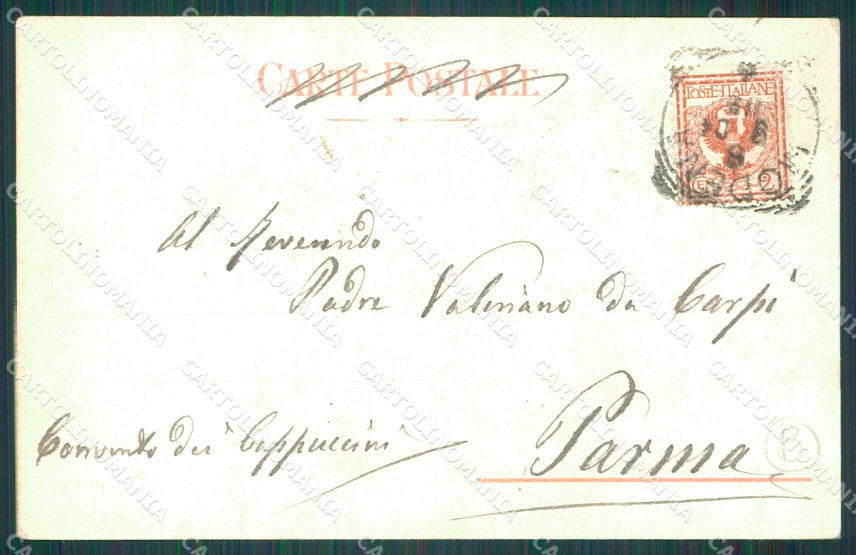 CARTE POSTALE
POSTE·ITALIANE
CENT 2
Al Reverendo
Padre Valeriano da Carpi
Convento dei Cappuccini
Parma
CARTOLINOMANIA